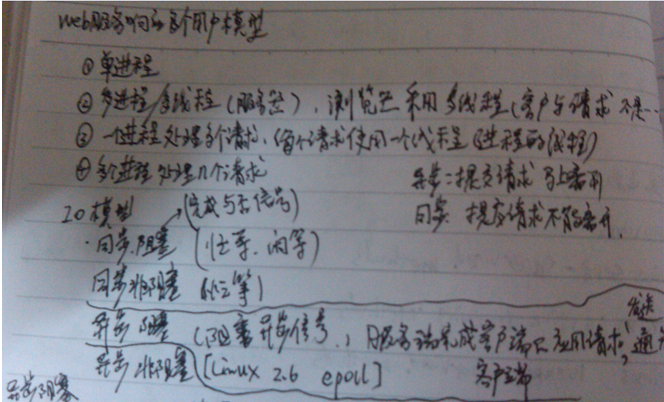 web服务响应多个用户模型
①单进程
②多进程/多线程(服务器),浏览器采用多线程(客户与请求不是一
③一个进程处理多个请求,每个请求使用一个线程(进程的线程)
④多个进程处理几个请求
异步:提交请求马上离开
IO模型 (完成与否信号)
同步:提交请求不能离开.
·同步,阻塞 (忙等,闲等)
同步非阻塞 (忙等)
异步阻塞 (阻塞异步信号,服务端完成客户端应用请求,发送 通
异步非阻塞 [Linux 2.6 epoll] 客户端
异步阻塞